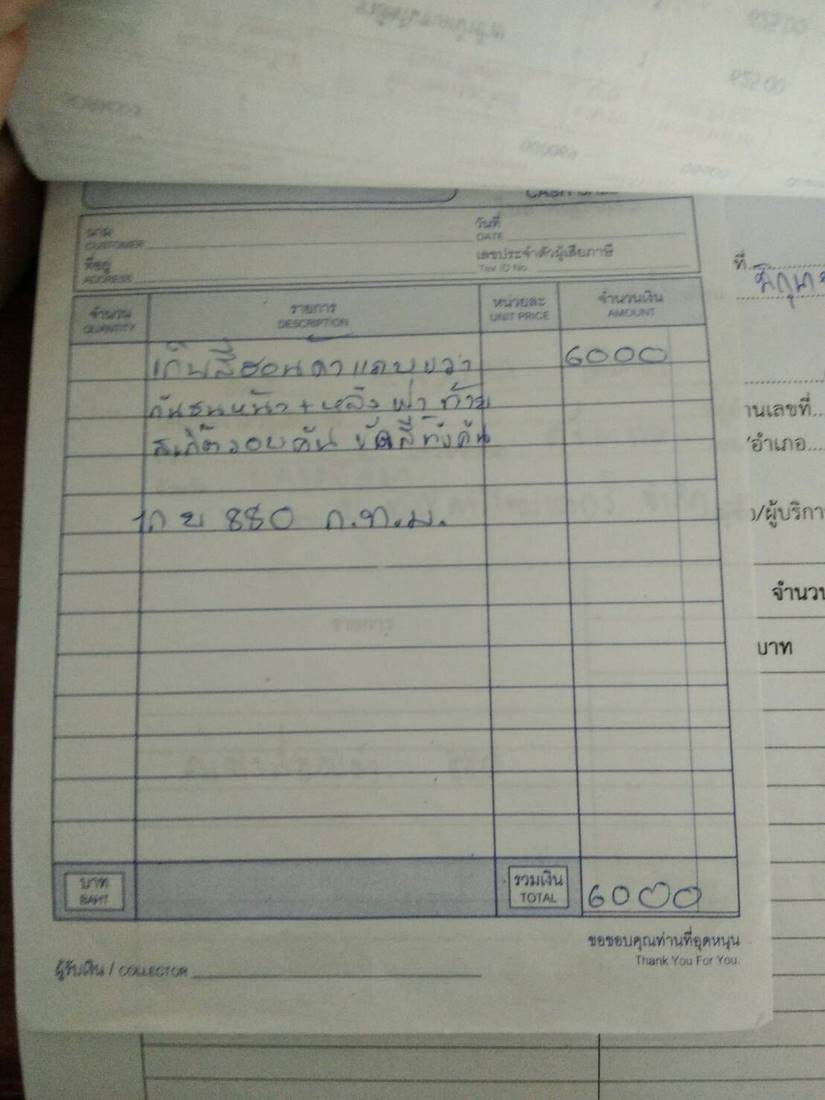 CASH SALE
นาม
CUSTOMER
วันที่
DATE
ที่อยู่
ADDRESS
เลขประจำตัวผู้เสียภาษี
Tax ID No.
ที่
จำนวน
QUANTITY
รายการ
DESCRIPTION
หน่วยละ
UNIT PRICE
จำนวนเงิน
AMOUNT
เก็บสีฮอนดาแถบขวา 6000
กันชนหน้า+หลัง ฝาท้าย
สเก็ตรอบคัน ขัดสีทั้งคัน
880 ก.ท.ม.
านเลขที่
/อำเภอ
/ผู้บริกา
จำนวน
บาท
บาท
BAHT
รวมเงิน
TOTAL
6000
ขอขอบคุณท่านที่อุดหนุน
Thank You For You.
ผู้รับเงิน / COLLECTOR